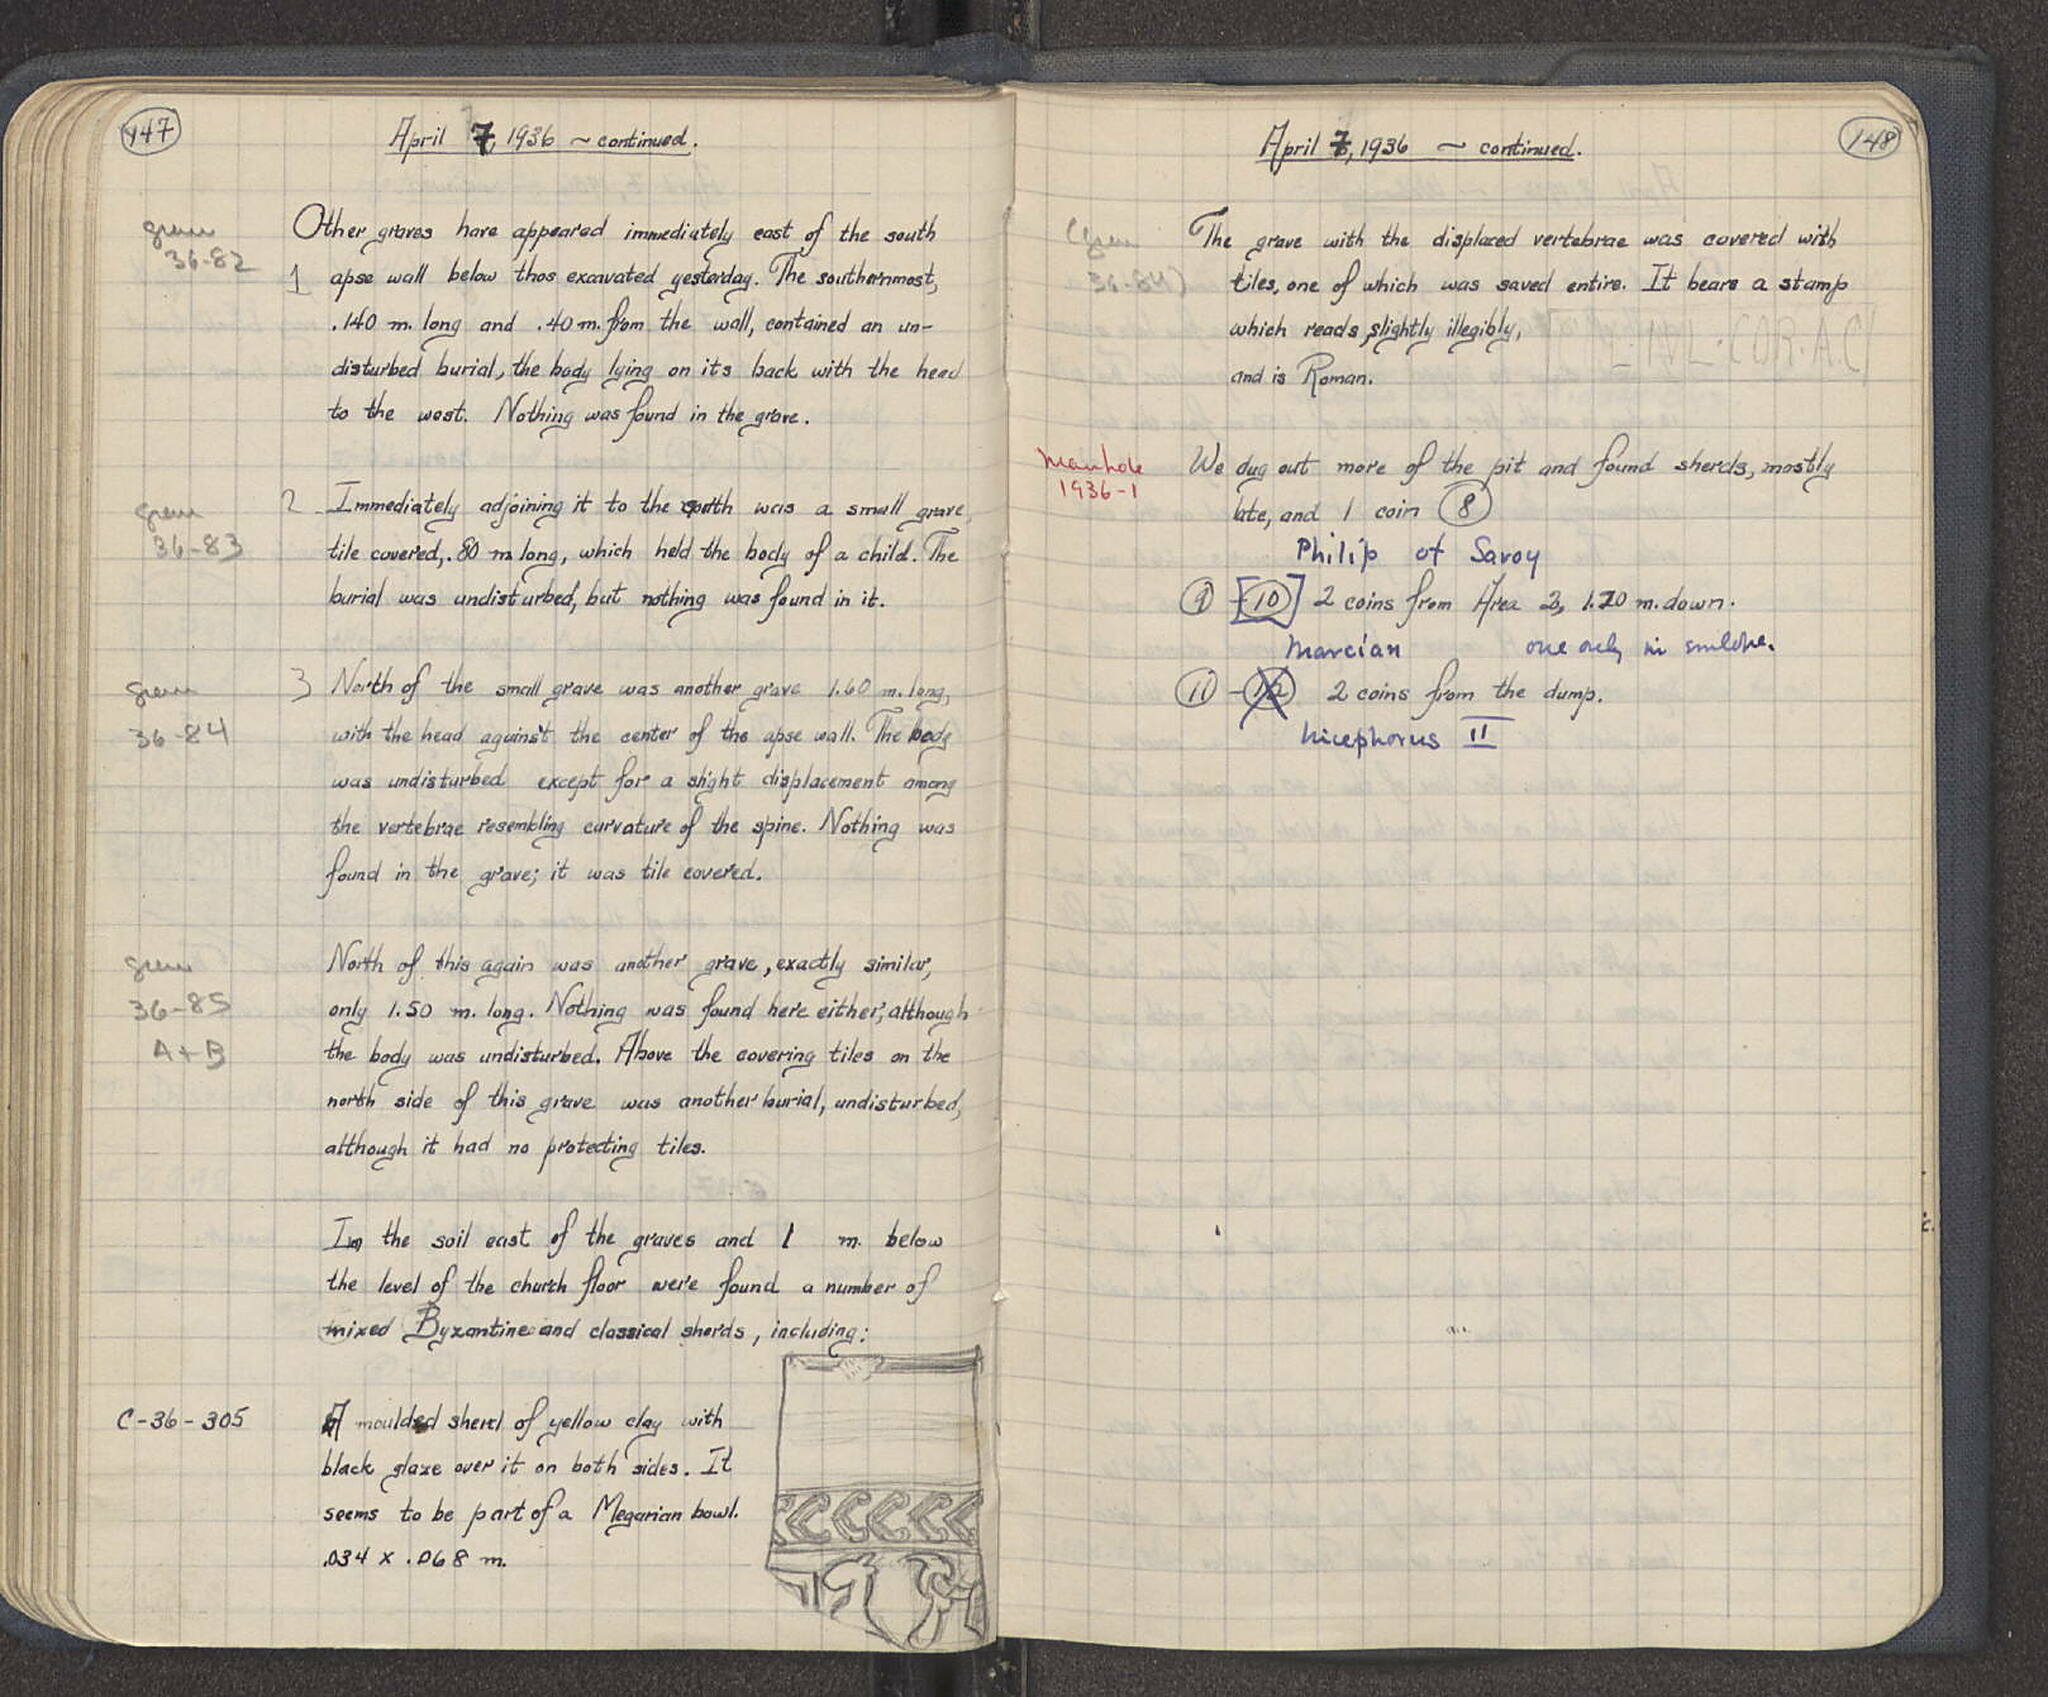 147
April 7, 1936 ~ continued.
grave
36-82
Other graves have appeared immediately east of the south
1 apse wall below thos excavated yesterday. The southernmost,
.140 m. long and .40 m. from the wall, contained an un-
disturbed burial, the body lying on its back with the head
to the west. Nothing was found in the grave.
grave
36-83
2 Immediately adjoining it to the was a small grave,
tile covered, .80 m long, which held the body of a child. The
burial was undisturbed, but nothing was found in it.
grave
36-84
3 North of the small grave was another grave 1.60 m. long,
with the head against the center of the apse wall. The body
was undisturbed except for a slight displacement among
the vertebrae resembling curvature of the spine. Nothing was
found in the grave; it was tile covered.
grave
36-85
A + B
North of this again was another grave, exactly similar,
only 1.50 m. long. Nothing was found here either, although
the body was undisturbed. Above the covering tiles on the
north side of this grave was another burial, undisturbed,
although it had no protecting tiles.
In the soil east of the graves and 1 m. below
the level of the church floor were found a number of
mixed Byzantine and classical sherds, including:
C-36-305
A moulded sherd of yellow clay with
black glaze over it on both sides. It
seems to be part of a Megarian bowl.
.034 x .068 m.
148
April 7, 1936 ~ continued.
(grave
36-84)
The grave with the displaced vertebrae was covered with
tiles, one of which was saved entire. It bears a stamp
which reads, slightly illegibly, L·IVL·COR·A·C
and is Roman.
Manhole
1936-1
We dug out more of the pit and found sherds, mostly
late, and 1 coin 8
Philip of Savoy
9 - [10] 2 coins from Area 2, 1.20 m. down.
Marcian one only in envelope.
11 - 12 2 coins from the dump.
Nicephorus II